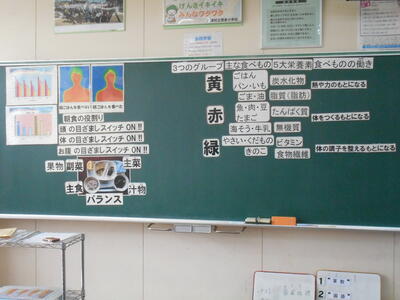 げんきイキイキ
みんなワクワク
朝食の役割り
頭 の目ざましスイッチ ON!!
体 の目ざましスイッチ ON!!
お腹 の目ざましスイッチ ON!!
果物
副菜
主菜
主食
汁物
バランス
3つのグループ
主な食べもの
5大栄養素
食べものの働き
黄
ごはん
パン・いも
炭水化物
ごま・油
脂質(脂肪)
熱や力のもとになる
赤
魚・肉・豆
たまご
たんぱく質
海そう・牛乳
無機質
体をつくるもとになる
緑
やさい・くだもの
きのこ
ビタミン
食物繊維
体の調子を整えるもとになる
1
算数
2
国語